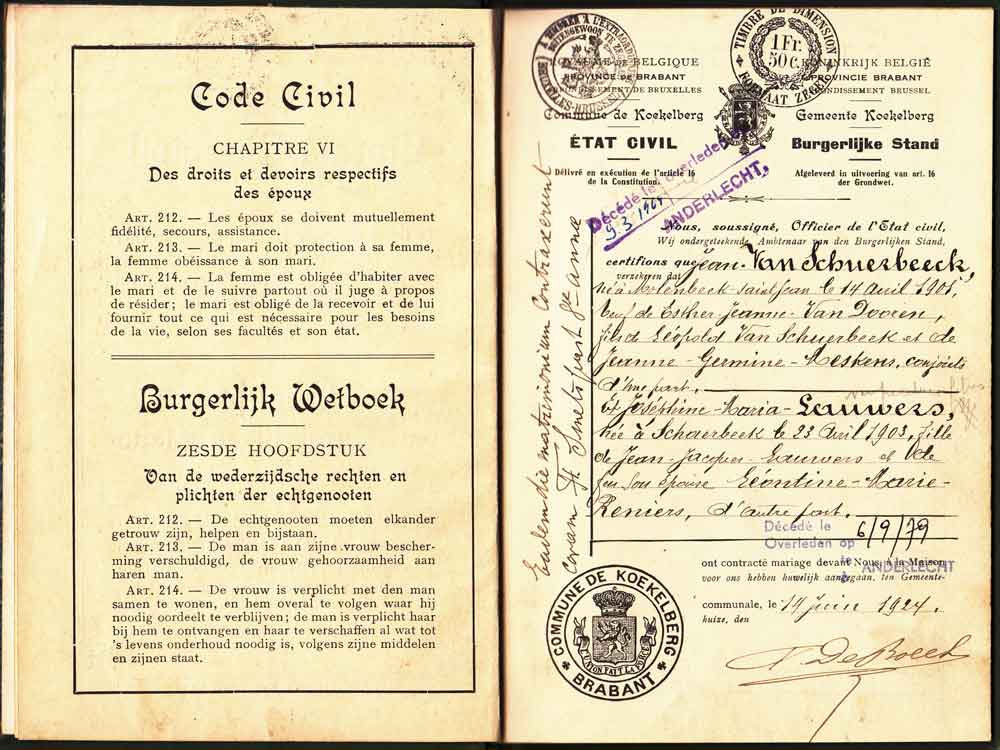 Code Civil
CHAPITRE VI
Des droits et devoirs respectifs
des époux
ART. 212. — Les époux se doivent mutuellement
fidélité, secours, assistance.
ART. 213. — Le mari doit protection à sa femme,
la femme obéissance à son mari.
ART. 214. — La femme est obligée d'habiter avec
le mari et de le suivre partout où il juge à propos
de résider ; le mari est obligé de la recevoir et de lui
fournir tout ce qui est nécessaire pour les besoins
de la vie, selon ses facultés et son état.
Burgerlijk Wetboek
ZESDE HOOFDSTUK
Van de wederzijdsche rechten en
plichten der echtgenooten
ART. 212. — De echtgenooten moeten elkander
getrouw zijn, helpen en bijstaan.
ART. 213. — De man is aan zijne vrouw bescher-
ming verschuldigd, de vrouw gehoorzaamheid aan
haren man.
ART. 214. — De vrouw is verplicht met den man
samen te wonen, en hem overal te volgen waar hij
noodig oordeelt te verblijven ; de man is verplicht haar
bij hem te ontvangen en haar te verschaffen al wat tot
's levens onderhoud noodig is, volgens zijne middelen
en zijnen staat.
TIMBRE DE DIMENSION
1 Fr.
50 c.
FORMAAT ZEGEL
BRUXELLES-BRUSSEL
ROYAUME DE BELGIQUE
PROVINCE DE BRABANT
ARRONDISSEMENT DE BRUXELLES
Commune de Koekelberg
ÉTAT CIVIL
Délivré en exécution de l'article 16
de la Constitution.
KONINKRIJK BELGIË
PROVINCIE BRABANT
ARRONDISSEMENT BRUSSEL
Gemeente Koekelberg
Burgerlijke Stand
Afgeleverd in uitvoering van art. 16
der Grondwet.
Décédé le Overleden
9.3.1964
ANDERLECHT.
Nous, soussigné, Officier de l'État civil,
Wij ondergeteekende, Ambtenaar van den Burgerlijken Stand,
certifions que Jean Van Schuerbeeck,
verzekeren dat
né à Molenbeek-Saint-Jean le 14 Avril 1901,
veuf de Esther-Jeanne Van Dooren,
fils de Léopold Van Schuerbeek et de
Jeanne-Germine-Meskens, conjoints
d'une part.
Et Joséphine-Maria-Lauwers,
née à Schaerbeek le 23 Avril 1903, fille
de Jean-Jacques-Lauwers et de
feu son épouse Léontine-Marie-
Reniers, d'autre part.
Décédé le
Overleden op
6/9/79
ANDERLECHT
ont contracté mariage devant Nous, à la Maison
voor ons hebben huwelijk aangegaan, ten Gemeente-
communale, le 14 juin 1924.
huize, den
De Boeck
Eadem die matrimonium contraxerunt
coram
COMMUNE DE KOEKELBERG
L'UNION FAIT LA FORCE
BRABANT